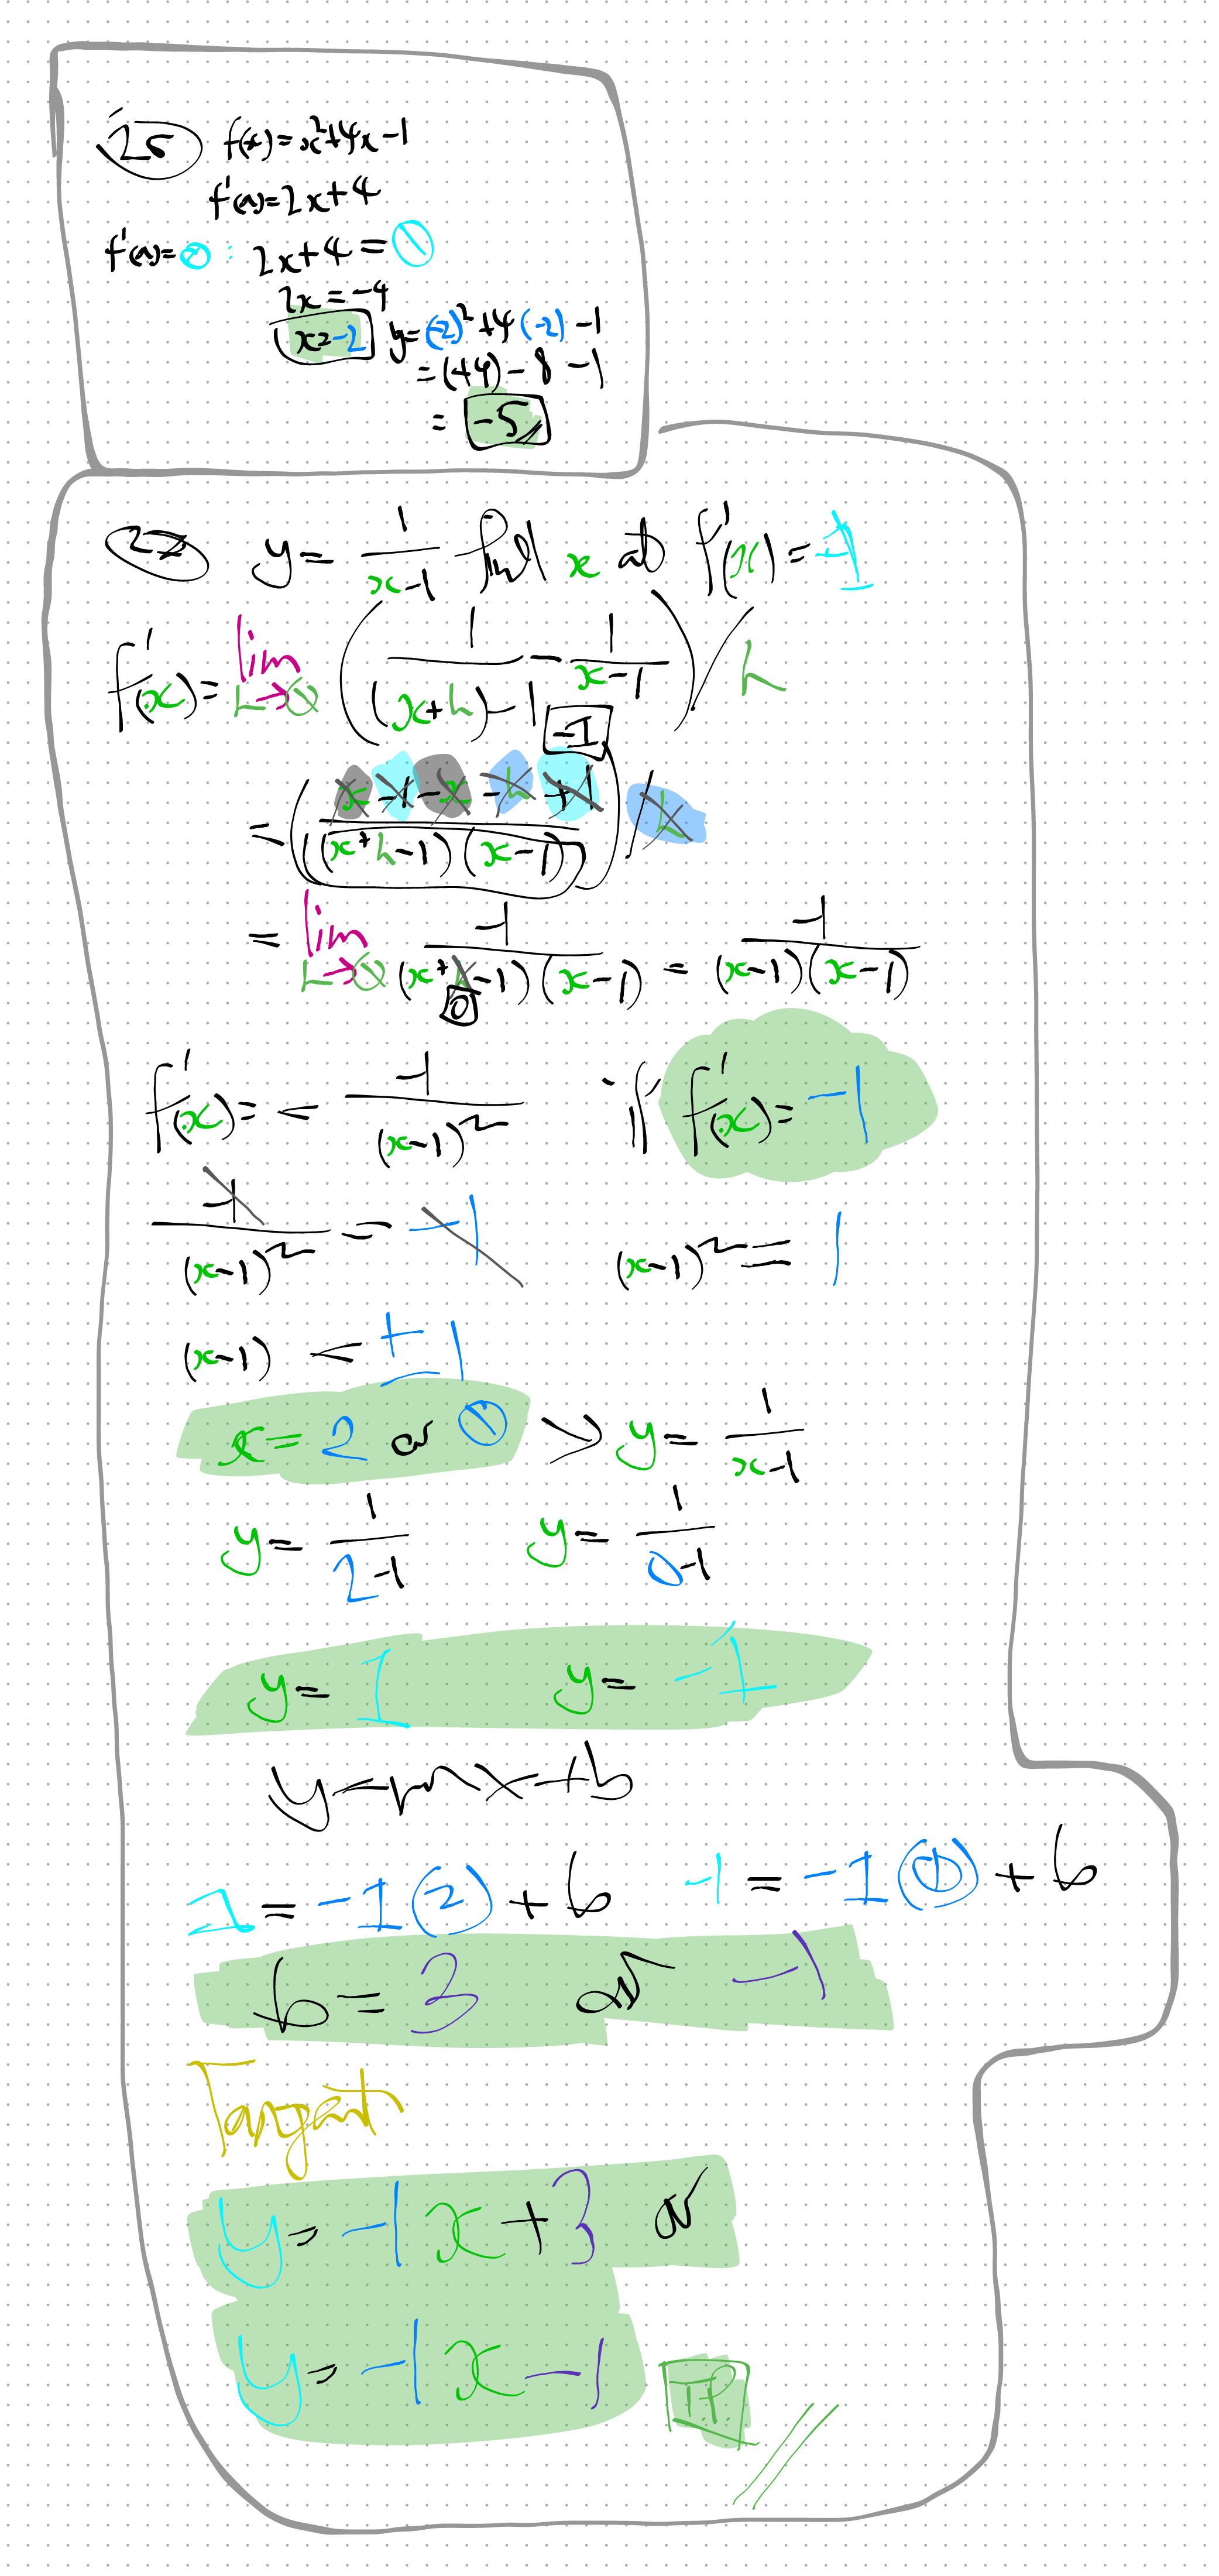 25 f(x)=x²+4x-1
f'(x)=2x+4
f'(x)=0: 2x+4=0
2x=-4
x=-2 y=(-2)²+4(-2)-1
=(+4)-8-1
= -5
27 y= 1/(x-1) find x at f'(x)=-1
f'(x)= lim h→0 (1/((x+h)-1) - 1/(x-1))/h
-1
=((x-1-x-h+1)/((x+h-1)(x-1)))/h
= lim h→0 -1/((x+h-1)(x-1)) = -1/((x-1)(x-1))
0
f'(x)= = -1/(x-1)² if f'(x)=-1
-1/(x-1)² = -1 (x-1)²=1
(x-1) = ±1
x=2 or 0 > y= 1/(x-1)
y= 1/(2-1) y= 1/(0-1)
y= 1 y= -1
y=mx+b
1 = -1(2) + b -1 = -1(0) + b
b= 3 or -1
Tangent
y= -1x+3 or
y= -1x-1 TP